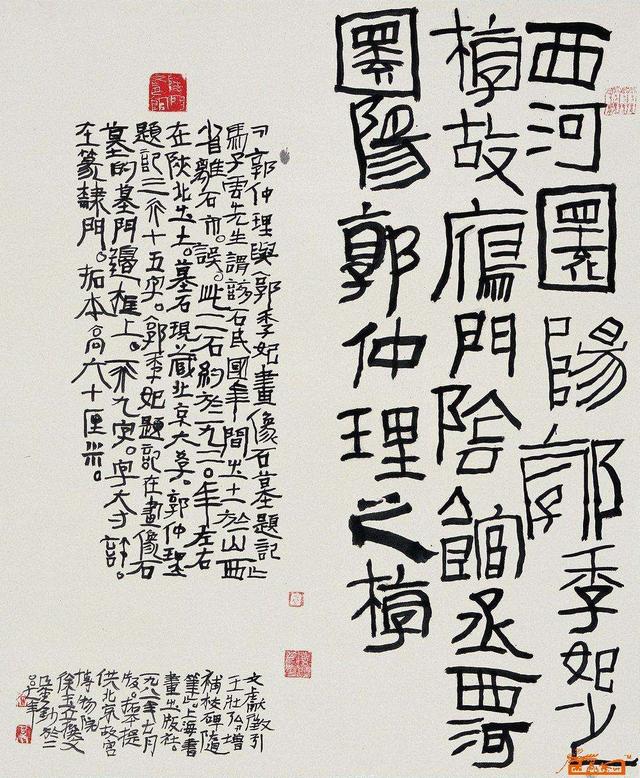 西河圜陽郭季妃之
椁故雁門陰館丞西河
圜陽郭仲理之椁
《郭仲理與郭季妃畫像石墓題記》
馬子雲先生謂該石民國年間出土於山西
省離石市。誤。此二石約於一九二〇年左右
在陝北出土。墓石現藏北京大學。郭仲理
題記二行十五字。郭季妃題記在畫像石
墓的墓門邊框上。一行九字。字大寸許。
在篆隸門。拓本高六十厘米。
文獻徵引
王壯弘增
補校碑隨
筆。上海書
畫出版社
一九八一年七月
版。拓本提
供北京故宮
博物院
徐玉立釋文